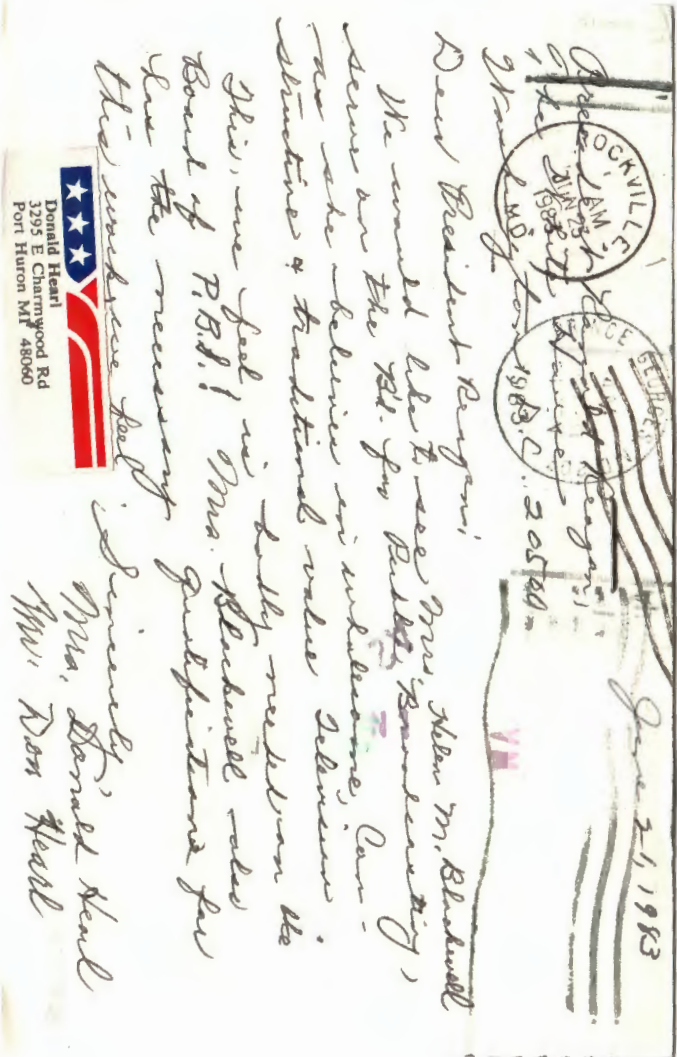 June 21, 1983
President Ronald Reagan,
The White House
Washington D.C. 20500
ROCKVILLE, MD
AM
JUN 23
1983
PRINCE GEORGE
1983
Dear President Reagan;
We would like to see Mrs Helen M. Blackwell
serve on the Bd. for Public Broadcasting,
as she believes in wholesome, Con-
structive & traditional value Television.
This, we feel, is badly needed on the
Board of P.B.S.! Mrs. Blackwell also
has the necessary qualifications for
this work, we feel.
Sincerely,
Mrs. Donald Hearl
Mr. Don Hearl
Donald Hearl
3295 E Charmwood Rd
Port Huron MI 48060